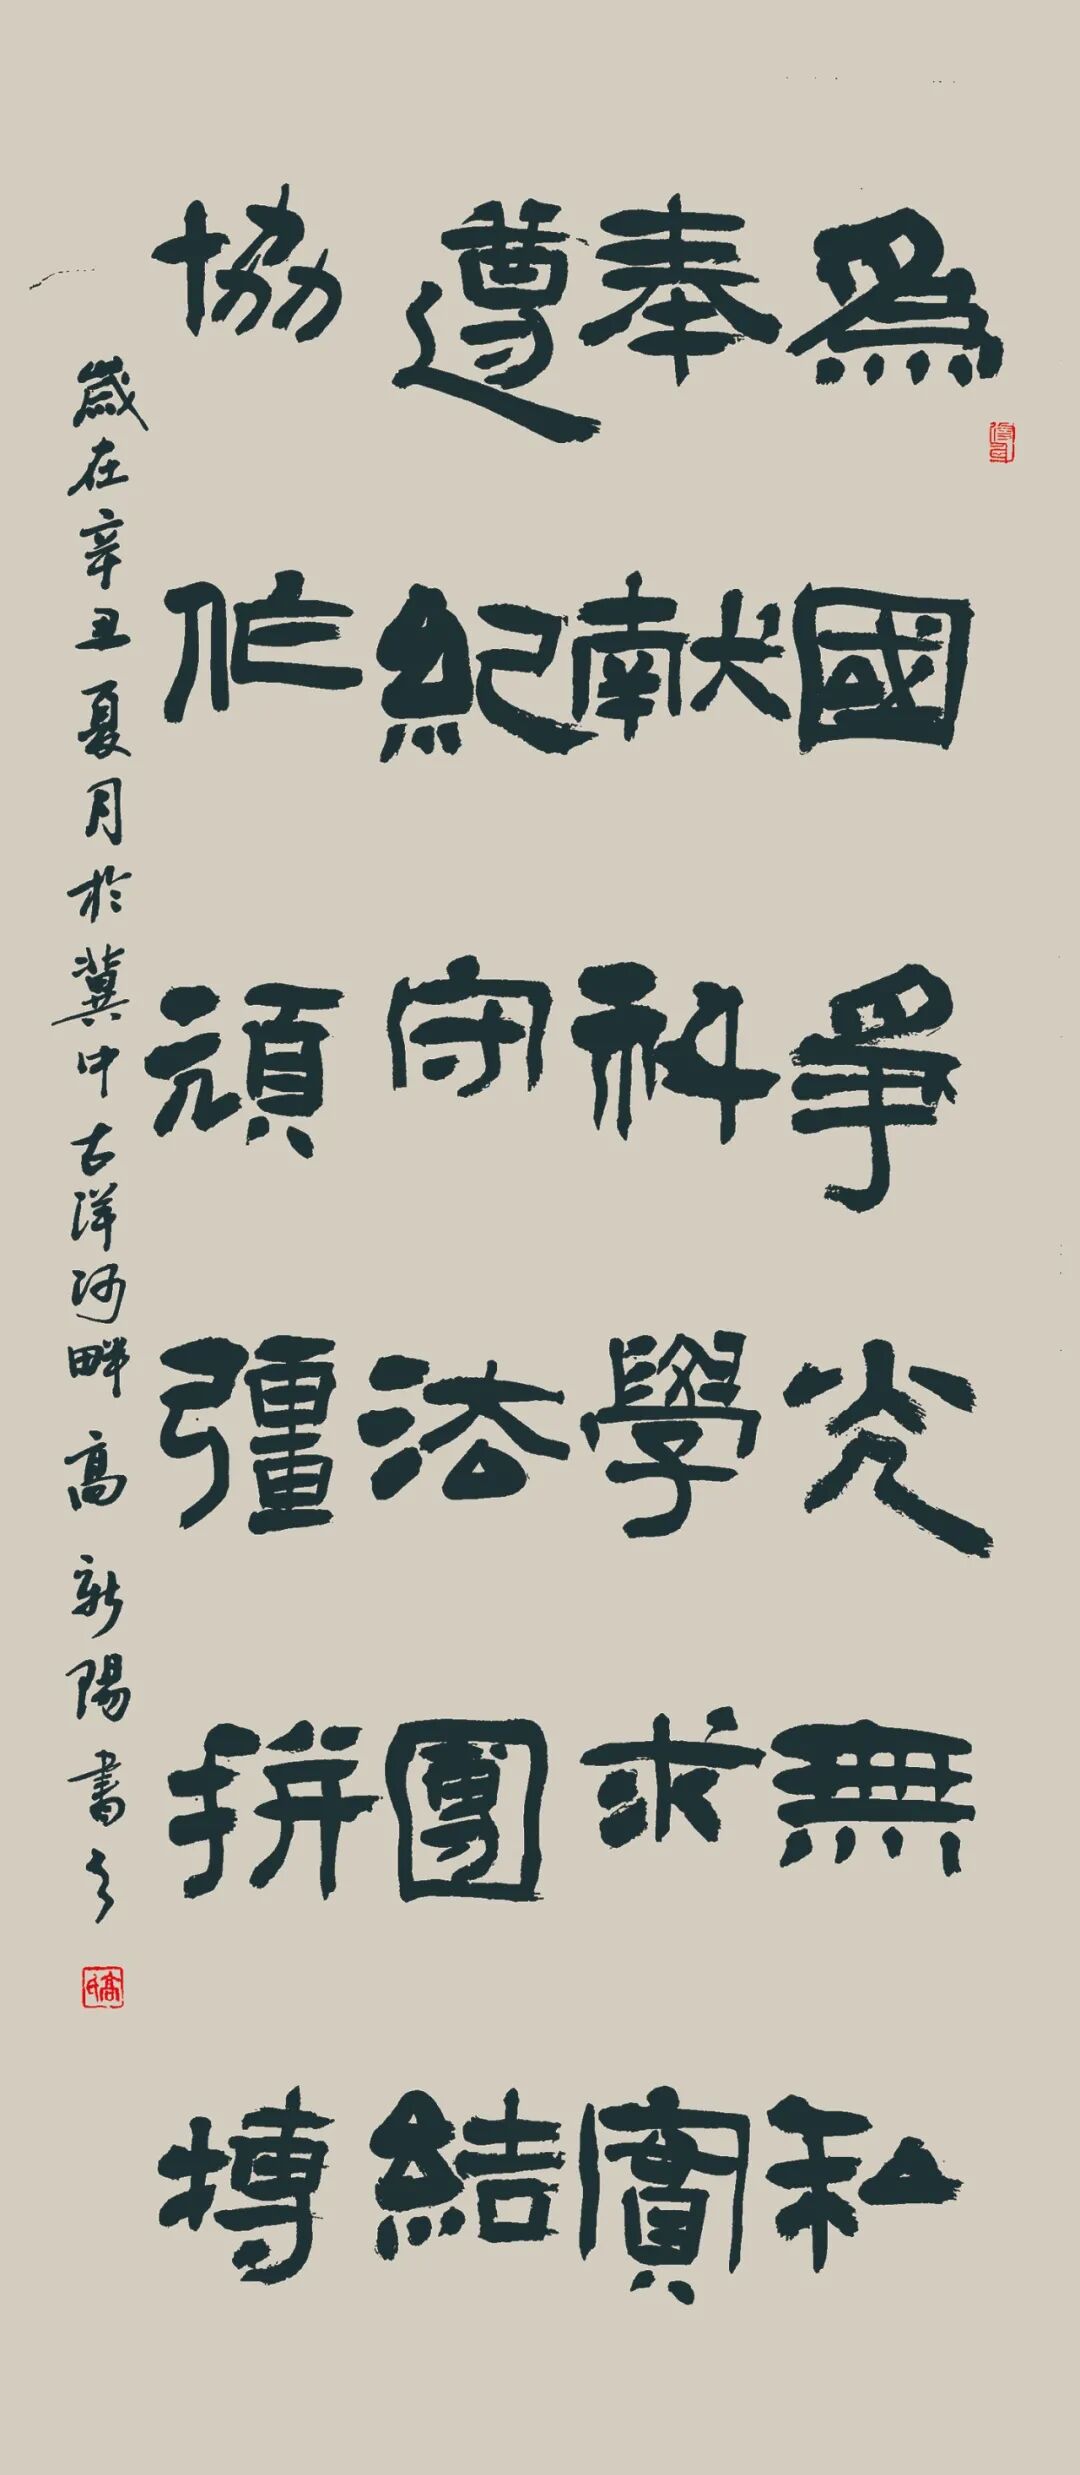 為國爭光無私
奉献科學求實
遵紀守法團結
協作頑彊拼搏
歲在辛丑夏月於冀中古洋河畔高新陽書之